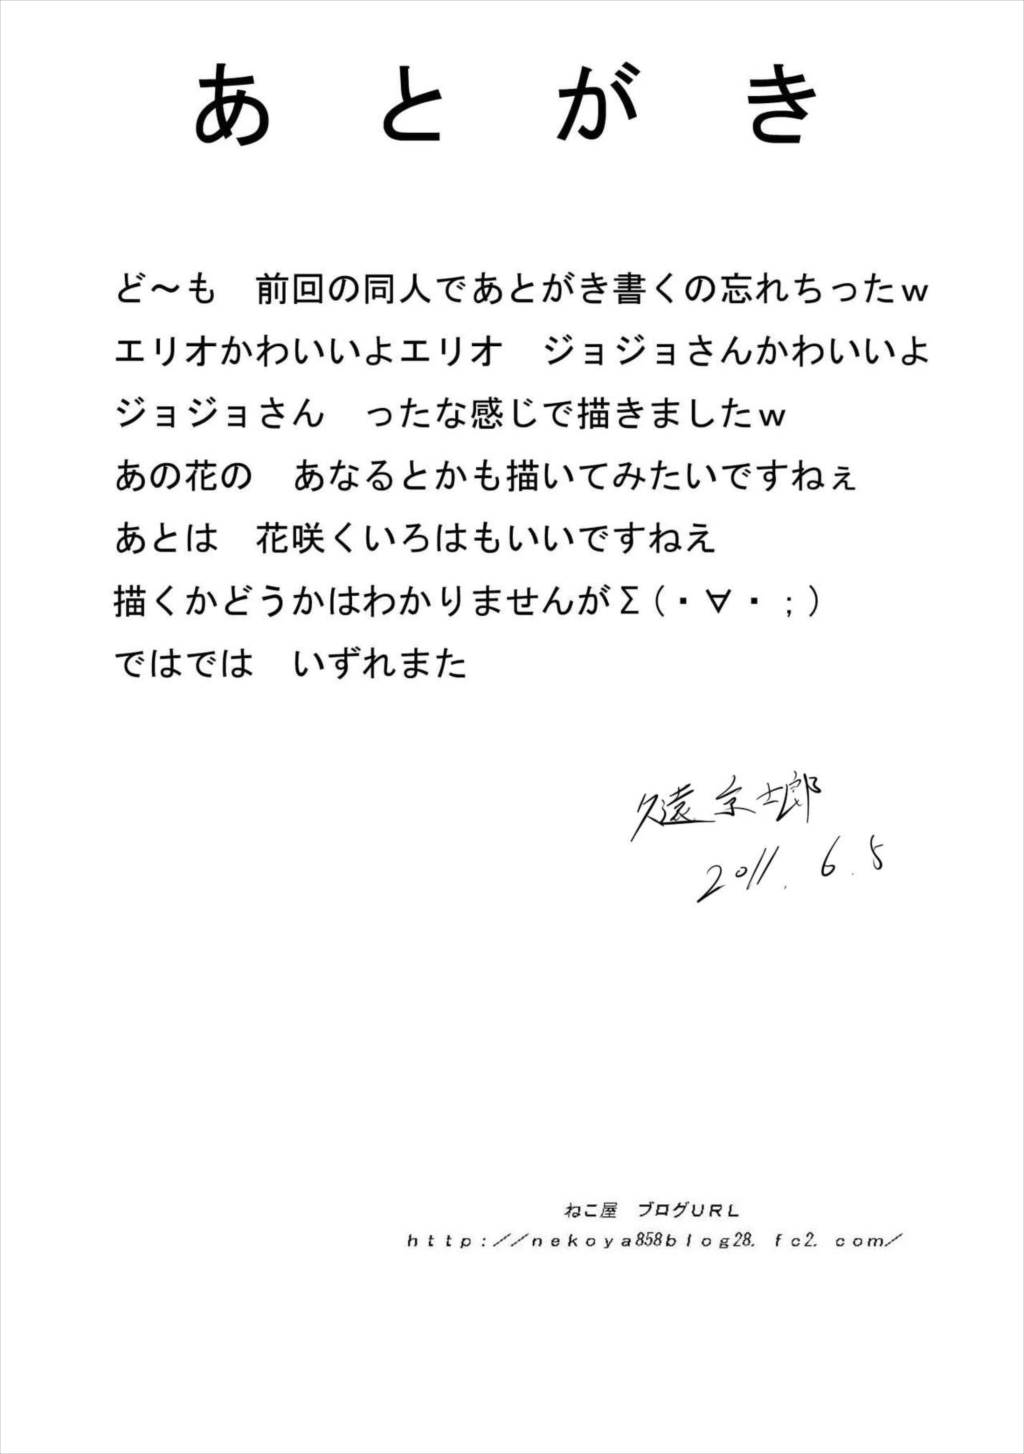 あとがき
ど～も　前回の同人であとがき書くの忘れちったｗ
エリオかわいいよエリオ　ジョジョさんかわいいよ
ジョジョさん　ったな感じで描きましたｗ
あの花の　あなるとかも描いてみたいですねぇ
あとは　花咲くいろはもいいですねえ
描くかどうかはわかりませんがΣ（・∀・；）
ではでは　いずれまた
久遠京士郎
2011.6.5
ねこ屋　ブログＵＲＬ
ｈｔｔｐ：／／ｎｅｋｏｙａ858ｂｌｏｇ28．ｆｃ2．ｃｏｍ／